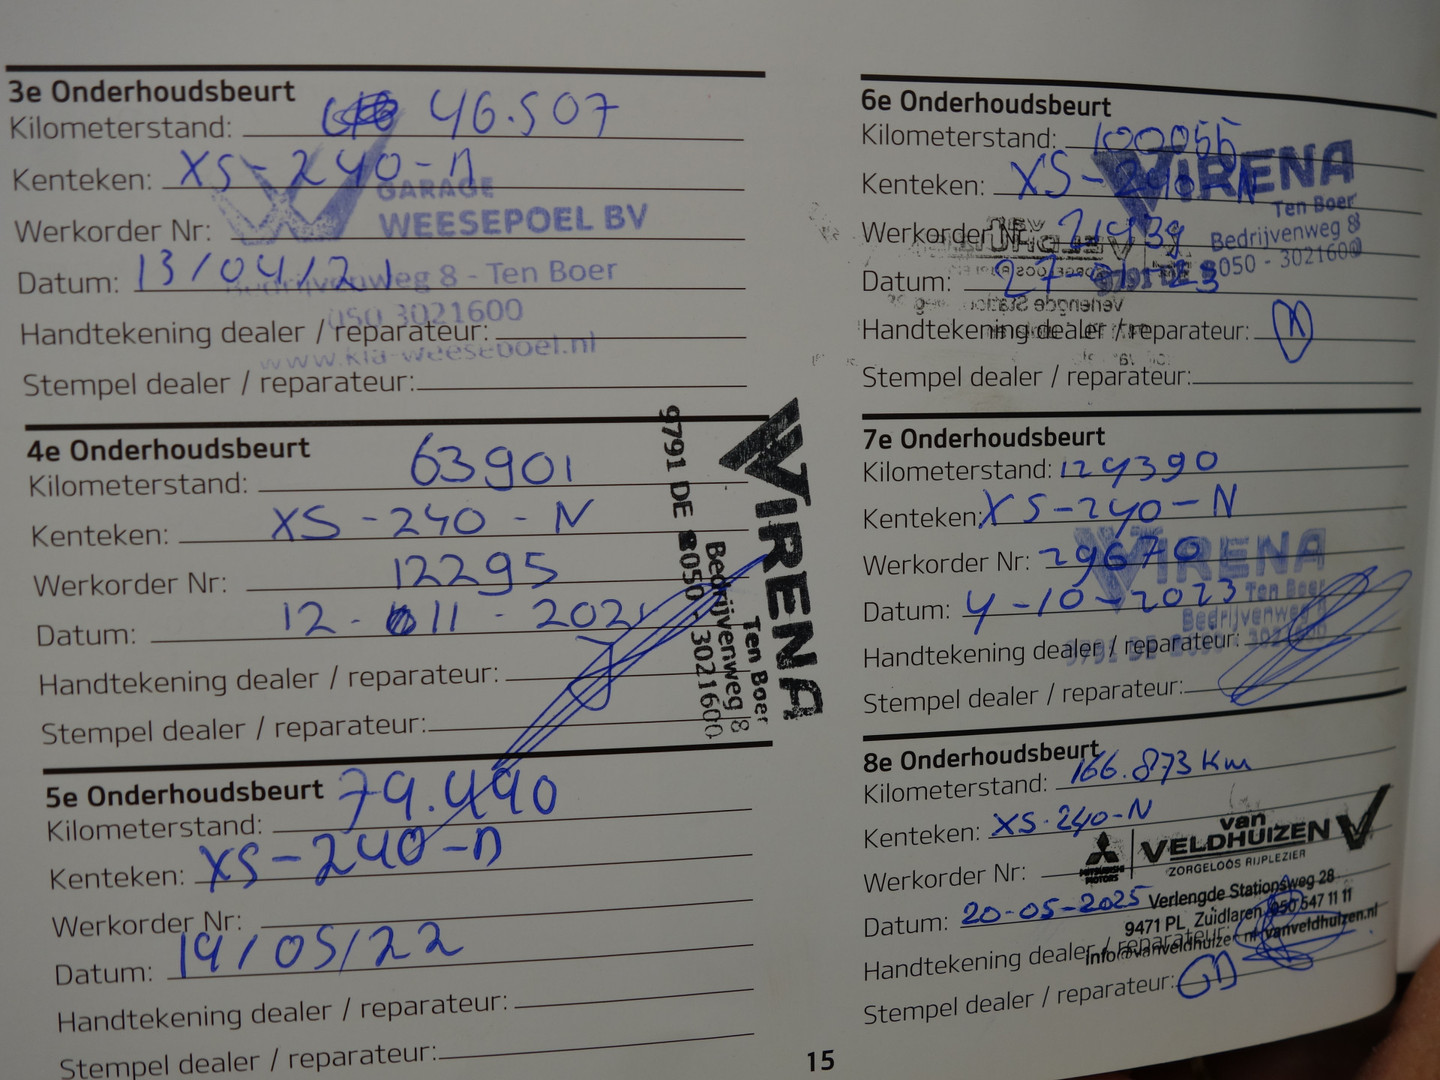 3e Onderhoudsbeurt
Kilometerstand: 46.507
Kenteken: XS-240-N
GARAGE
WEESEPOEL BV
Werkorder Nr:
Datum: 13/04/21
Bedrijvenweg 8 - Ten Boer
050 3021600
Handtekening dealer / reparateur:
www.kia-weesepoel.nl
Stempel dealer / reparateur:
4e Onderhoudsbeurt
Kilometerstand: 63901
Kenteken: XS-240-N
Werkorder Nr: 12295
Datum: 12-11-2021
Handtekening dealer / reparateur:
Stempel dealer / reparateur:
VIRENA
Ten Boer
Bedrijvenweg 8
9791 DE 050 - 3021600
5e Onderhoudsbeurt
Kilometerstand: 79.490
Kenteken: XS-240-N
Werkorder Nr:
Datum: 19/05/22
Handtekening dealer / reparateur:
Stempel dealer / reparateur:
6e Onderhoudsbeurt
Kilometerstand: 100055
Kenteken: XS-240-N
VIRENA
Ten Boer
Werkorder Nr:
Bedrijvenweg 8
9791 DE 050 - 3021600
Datum:
Handtekening dealer / reparateur:
Stempel dealer / reparateur:
7e Onderhoudsbeurt
Kilometerstand: 124390
Kenteken: XS-240-N
Werkorder Nr: 29670
VIRENA
Ten Boer
Datum: 4-10-2023
Bedrijvenweg 8
9791 DE 050 - 3021600
Handtekening dealer / reparateur:
Stempel dealer / reparateur:
8e Onderhoudsbeurt
Kilometerstand: 166.873 Km
Kenteken: XS-240-N
Werkorder Nr:
MITSUBISHI
MOTORS
van
VELDHUIZEN
ZORGELOOS RIJPLEZIER
Datum: 20-05-2025
Verlengde Stationsweg 28
9471 PL Zuidlaren 050 547 11 11
Handtekening dealer / reparateur:
Stempel dealer / reparateur:
15